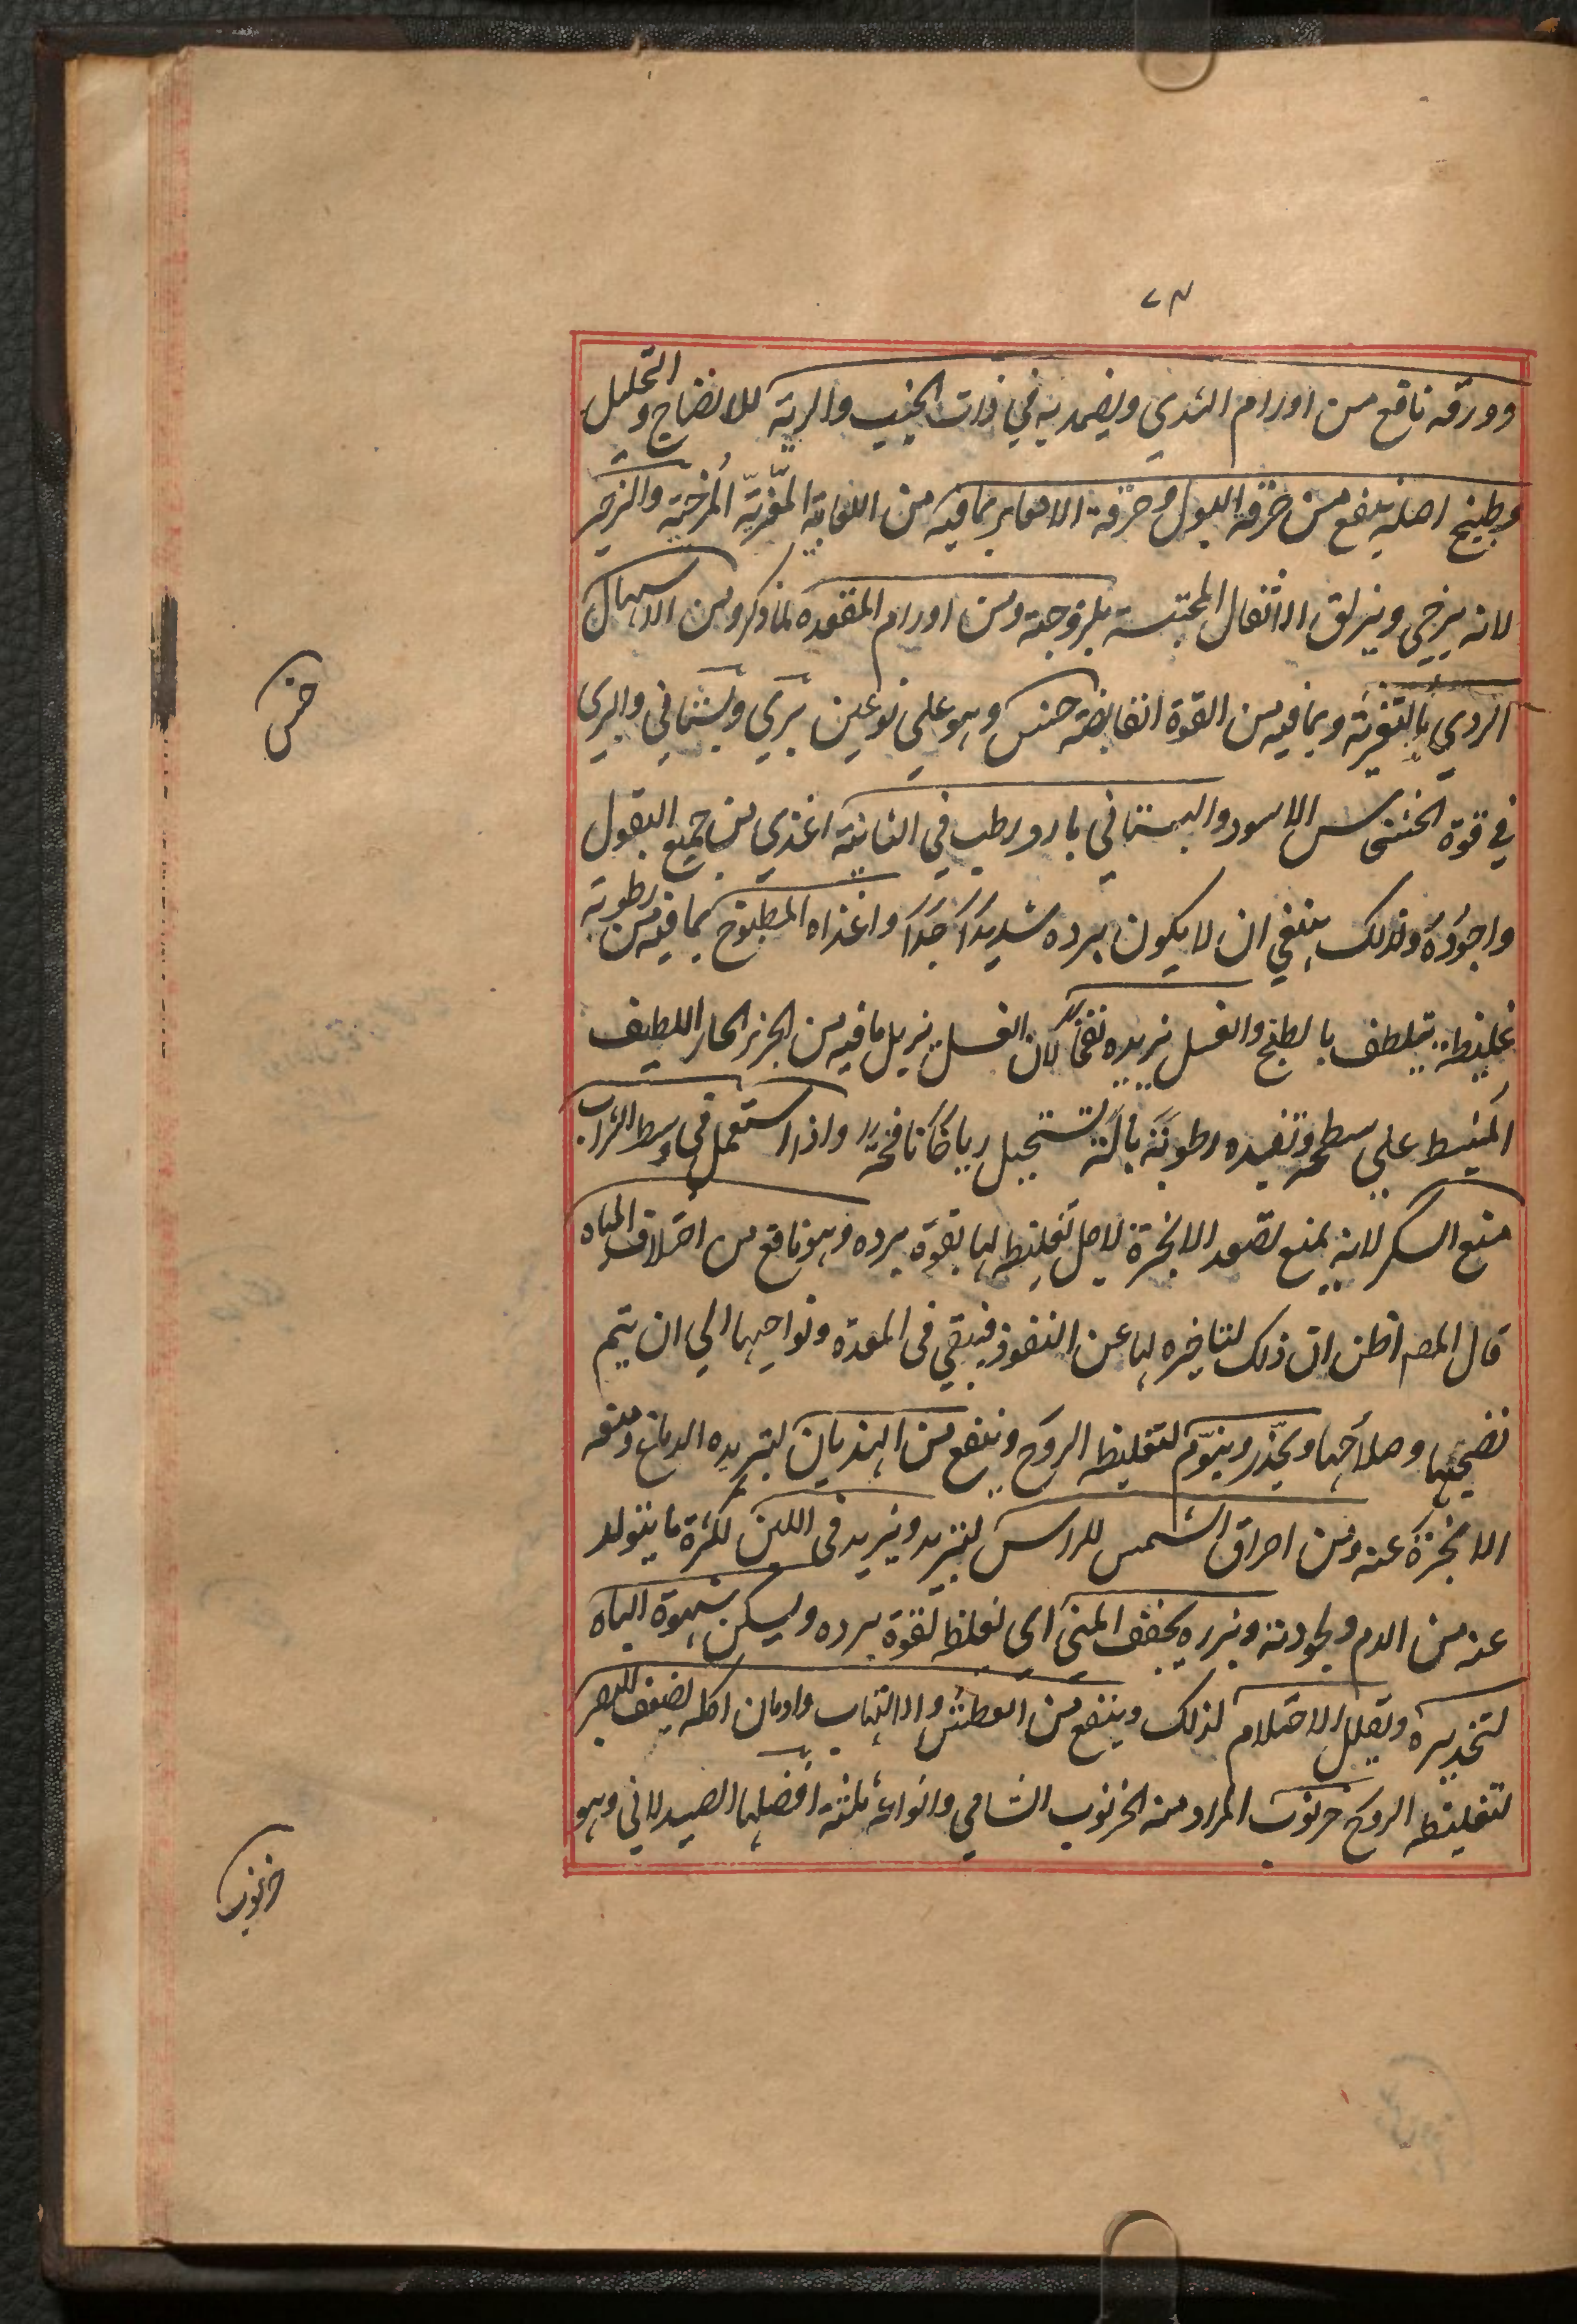 ٧٣
وورقه نافع من اورام الثدي ويضمد به في ذات الجنب والرية للانضاج والتحليل
وطبيخ اصله ينفع من حرقة البول وحرقة الامعاء بما فيه من اللعابية المغرية المرخية والزحير
لانه يرخي ويزلق الاثفال المحتبسة بلزوجته ومن اورام المقعدة لما ذكر ومن الاسهال
الردي بالتغرية وبما فيه من القوة القابضة خس وهو على نوعين بري وبستاني والبري
في قوة الخشخاش الاسود والبستاني بارد رطب في الثانية اغذي من جميع البقول
واجوده ولذلك ينبغي ان لا يكون برده شديدا جدا واغذاه المطبوخ بما فيه من رطوبة
غليظة يتلطف بالطبخ والغسل يزيده نفخا لان الغسل يزيل ما فيه من الجزء الحار اللطيف
المنبسط على سطحه وتفيده رطوبة بالة تستحيل رياحا نافخة واذا استعمل في وسط الشراب
منع السكر لانه يمنع تصعد الابخرة لاجل تغليظه لها بقوة برده وهو نافع من اختلاف المياه
قال المصـ اظن ان ذلك لتاخيره لها عن النفوذ فيبقي في المعدة ونواحيها الي ان يتم
نضجها وصلاحها ويخدر وينوم لتغليظه الروح وينفع من الهذيان لتبريده الدماغ ومنعه
الابخرة عنه ومن احراق الشمس للراس لتبريده ويزيد في اللبن لكثرة ما يتولد
عنه من الدم ولجودته وبزره يجفف المني اي يغلظه لقوة برده ويسكن شهوة الباه
لتخديره ويقلل الاحتلام لذلك وينفع من العطش والالتهاب وادمان اكله يضعف البصر
لتغليظه الروح خرنوب المراد منه الخرنوب الشامي وانواعه ثلثة افضلها الصيدلاني وهو
خس
خرنوب